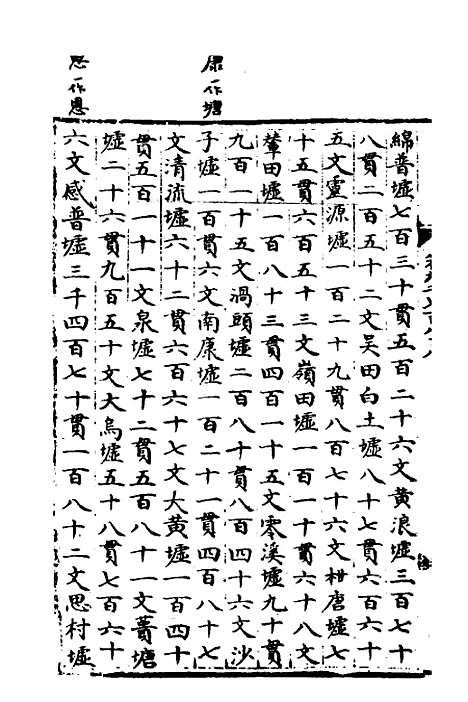 康一作塘
思一作恩
綿普墟七百三十貫五百二十六文黄浪墟三百七十
八貫二百五十二文吴田白土墟八十七貫六百六十
五文靈源墟一百二十九貫八百七十六文柑唐墟七
十五貫六百五十三文嶺田墟一百一十貫六十八文
輋田墟一百八十三貫四百一十五文零溪墟九十貫
九百一十五文渦頭墟二百八十貫八百四十六文沙
子墟一百貫六文南康墟一百二十一貫四百八十七
文清流墟六十二貫六百六十七文大黄墟一百四十
貫五百一十一文泉墟七十二貫五百八十一文薹塘
墟二十六貫九百五十文大烏墟五十八貫七百六十
六文感普墟三千四百七十貫一百八十二文思村墟